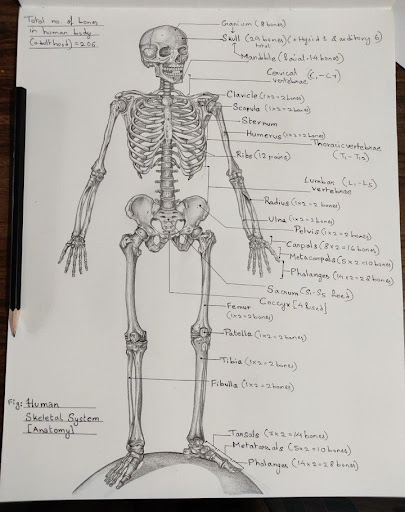 Total no. of bones
in human body
(adulthood) = 206.
Cranium (8 bones)
Skull (29 bones) (+Hyoid 1 & auditory 6)
total
Mandible (facial-14 bones)
Cervical (C₁-C7)
vertebrae
Clavicle (1x2=2bones)
Scapula (1x2=2bones)
Sternum
Humerus (1x2=2bones)
Thoracic vertebrae
(T₁-T₁₂)
Ribs (12 pairs)
Lumbar (L₁-L₅)
vertebrae
Radius (1x2=2bones)
Ulna (1x2=2bones)
Pelvis (1x2=2bones)
Carpals (8x2=16bones)
Metacarpals (5x2=10bones)
Phalanges (14x2=28bones)
Sacrum (S₁-S₅ fused)
Coccyx [4 fused]
Femur
(1x2=2bones)
Patella (1x2=2bones)
Tibia (1x2=2bones)
Fibulla (1x2=2bones)
Fig: Human
Skeletal System
[Anatomy]
Tarsals (7x2=14bones)
Metatarsals (5x2=10bones)
Phalanges (14x2=28bones)